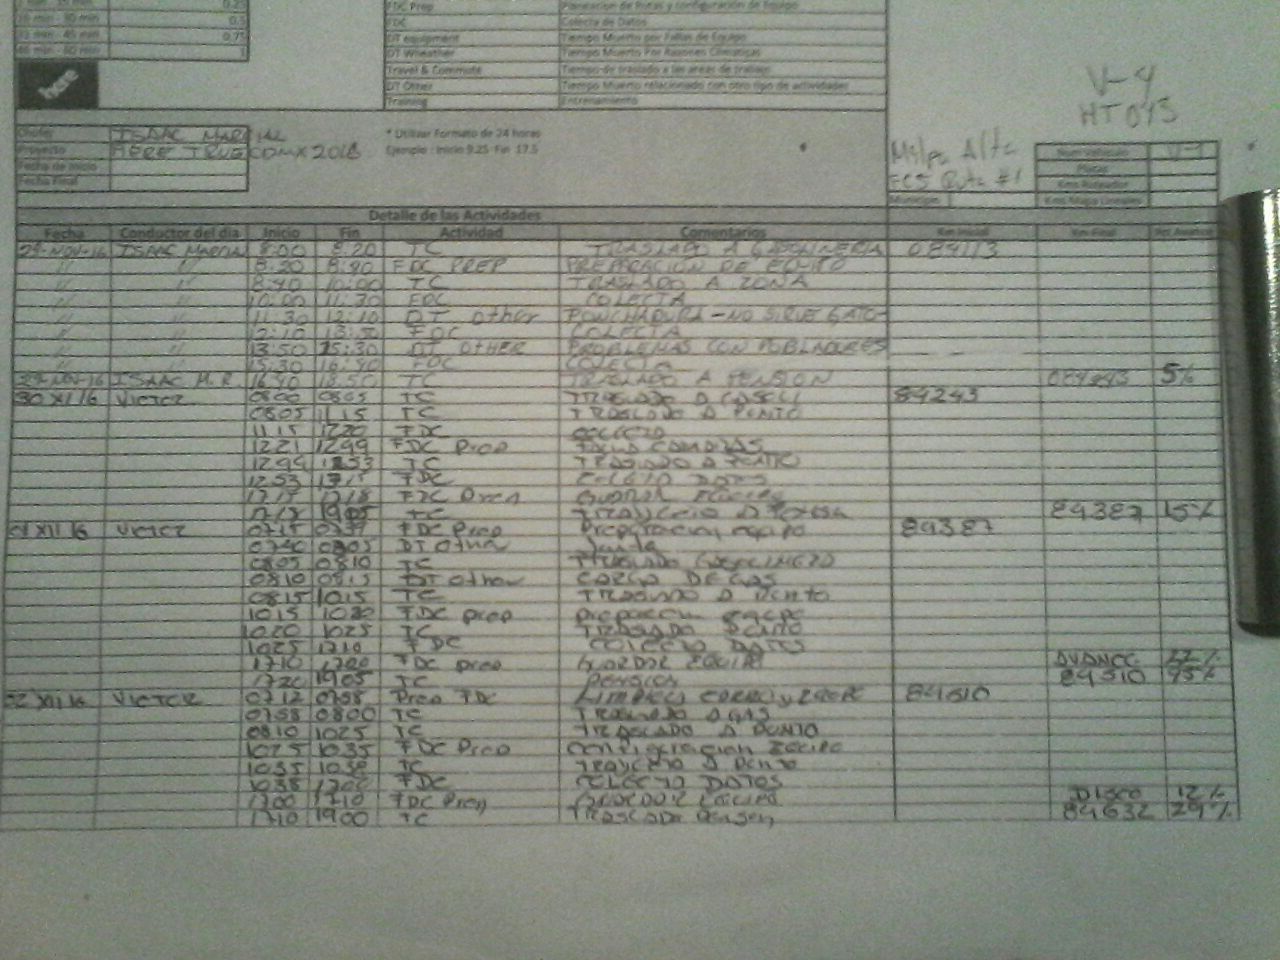 0.25
16 min - 30 min 0.5
31 min - 45 min 0.75
46 min - 60 min 1
FDC Prep Planeacion de Rutas y configuración de Equipo
FDC Colecta de Datos
DT equipment Tiempo Muerto por Fallas de Equipo
DT Wheather Tiempo Muerto Por Razones Climaticas
Travel & Commute Tiempo de traslado a las areas de trabajo
DT Other Tiempo Muerto relacionado con otro tipo de actividades
Training Entrenamiento
here
V-4
HT 045
Chofer ISAAC MARCIAL
Proyecto HERE TRUE CDMX 2016
Fecha de Inicio
Fecha Final
* Utilizar Formato de 24 horas
Ejemplo : Inicio 9.25 Fin 17.5
Milpa Alta
#1
Municipio
Num Vehiculo
Placas
Kms Ruteador
Kms Mapa Lineales
Detalle de las Actividades
Fecha Conductor del dia Inicio Fin Actividad Comentarios Km Inicial Km Final
29-NOV-16 ISAAC MARCIAL 8:00 8:20 TC TRASLADO A GASOLINERIA 084113
" " 8:20 8:40 FDC PREP PREPARACION DE EQUIPO
" " 8:40 10:00 TC TRASLADO A ZONA
" " 10:00 11:30 FDC COLECTA
" " 11:30 12:10 DT other PONCHADURA - NO SIRVE GATO-
" " 12:10 13:50 FDC COLECTA
" " 13:50 15:30 DT OTHER PROBLEMAS CON POBLADORES
" " 15:30 16:40 FDC COLECTA
29-NOV-16 ISAAC M.R. 16:40 18:50 TC TRASLADO A PENSION 084243 5%
30 XI 16 VICTOR 0800 0805 TC TRASLADO A 84243
0805 1115 TC TRASLADO A PUNTO
1115 1220 FDC COLECTA
1221 1244 FDC Prep FALLA CAMARAS
1244 1253 TC TRASLADO A PUNTO
1253 1715 FDC COLECTA DATOS
1715 1718 FDC Prep GUARDAR EQUIPO
1718 1905 TC TRAYECTO A 84387 15%
01 XII 16 VICTOR 0715 FDC Prep Preparacion equipo 84387
0740 0805 DT other Junta
0805 0810 TC TRASLADO GASOLINERA
0810 0815 DT other CARGA DE GAS
0815 1015 TC TRASLADO A PUNTO
1015 1020 FDC prep preparacion equipo
1020 1025 TC TRASLADO PUNTO
1025 1710 FDC COLECTA DATOS
1710 1720 FDC prep GUARDAR EQUIPO AVANCE
1720 1905 TC PENSION 84510
02 XII 16 VICTOR 0712 0758 Prep FDC LIMPIEZA CARRO y EQUIPO 84510
0758 0800 TC TRASLADO A GAS
0810 1025 TC TRASLADO A PUNTO
1025 1035 FDC Prep configuracion EQUIPO
1035 1038 TC TRAYECTO A PUNTO
1038 1700 FDC COLECTA DATOS
1700 1710 FDC Prep GUARDAR EQUIPO DISCO 12%
1710 1900 TC TRASLADO PENSION 84632 29%